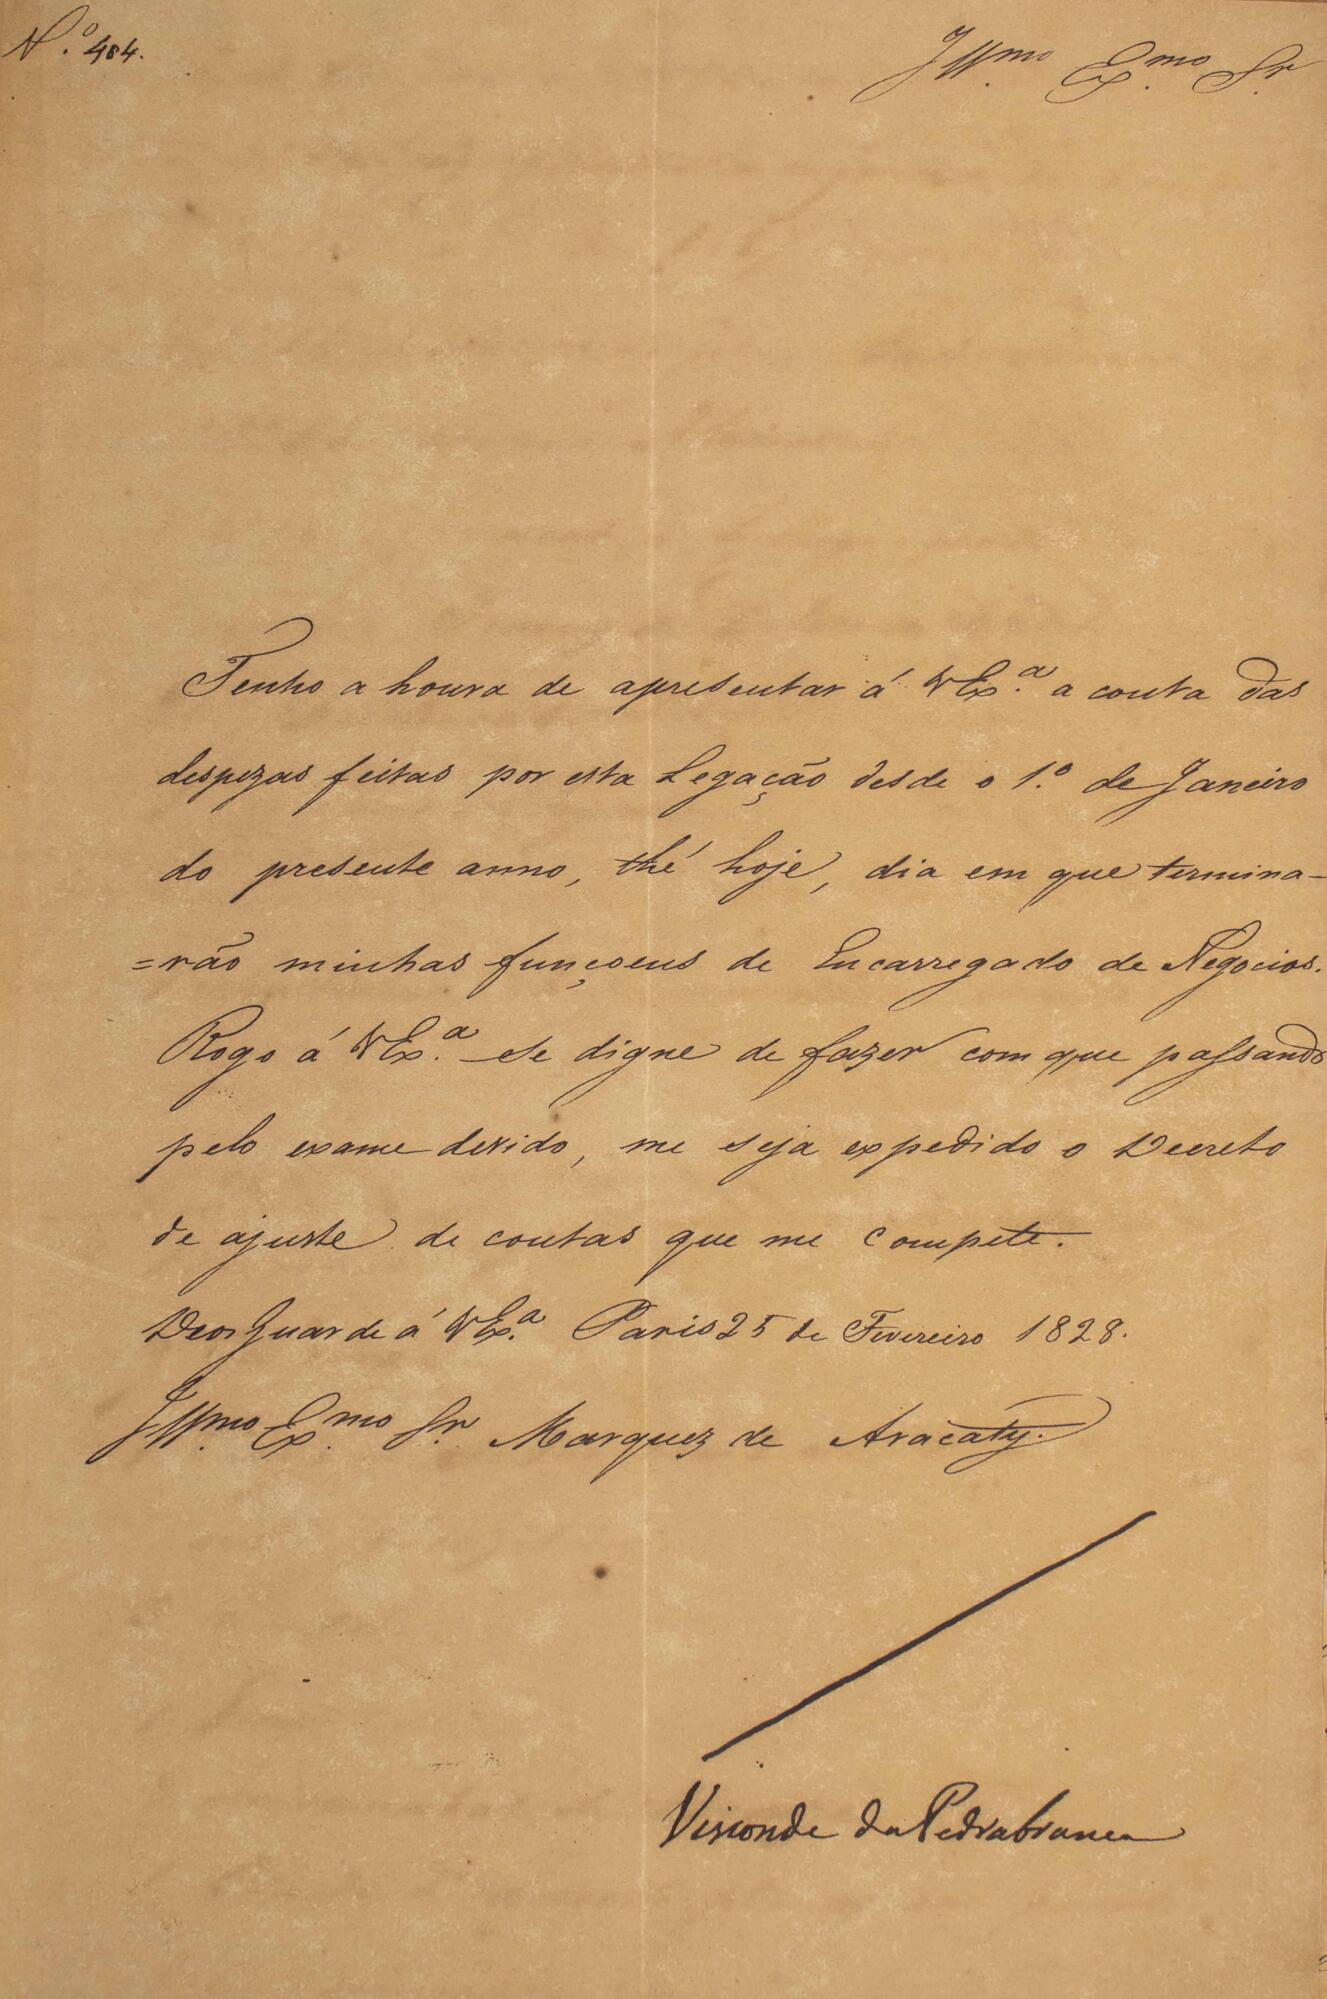 N.º 484.
Illmo. Exmo. Sr.
Tenho a honra de apresentar á VExª. a conta das
despezas feitas por esta Legação desde o 1.º de Janeiro
do presente anno, thé hoje, dia em que termina-
=rão minhas funçoens de Encarregado de Negocios.
Rogo á VExª. se digne de fazer com que passando
pelo exame devido, me seja expedido o Decreto
de ajuste de contas que me compete.
Deos Guarde á VExª. Paris 25 de Fevereiro 1828.
Illmo. Exmo. Sr. Marquez de Aracaty.
Visconde da Pedrabranca